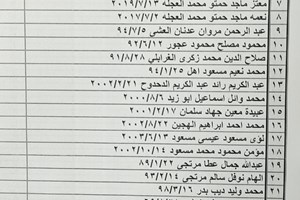 ٧ معتز ماجد حمتو محمد العجله ٢٠١٩/٧/١٣
٨ نعمه ماجد حمتو محمد العجله ٢٠١٧/٧/٢
٩ عبد الرحمن مروان عدنان العشي ٩٤/٧/٥
١٠ محمود مصلح محمود عجور ٩٢/٦/١٢
١١ صلاح الدين محمد زكري الغرابلي ٩١/٨/٢
١٢ محمد نعيم مسعود اهل ٩٤/١/٢٥
١٣ عبد الكريم رائد عبد الكريم الدحدوح ٢٠٠٢/٢/٢١
١٤ محمد وائل اسماعيل ابو زيد ٢٠٠٠/٨/٦
١٥ عبيدة معين جهاد سلمان ٢٠٠١/٧/٢
١٦ محمد احمد ابراهيم الهجين ٢٠٠٢/٨/٢٢
١٧ لؤي مسعود عيسى مسعود ٢٠٠٣/٦/١٣
١٨ مؤمن محمود محمد مسعود ٢٠٠٢/١٠/١٤
١٩ عبدالله جمال عطا مرتجى ٨٩/١/٢٢
٢٠ الهام نوفل سالم مرتجى ٩٣/٢/١٤
٢١ محمد وليد ديب بدر ٩٨/٣/١٦